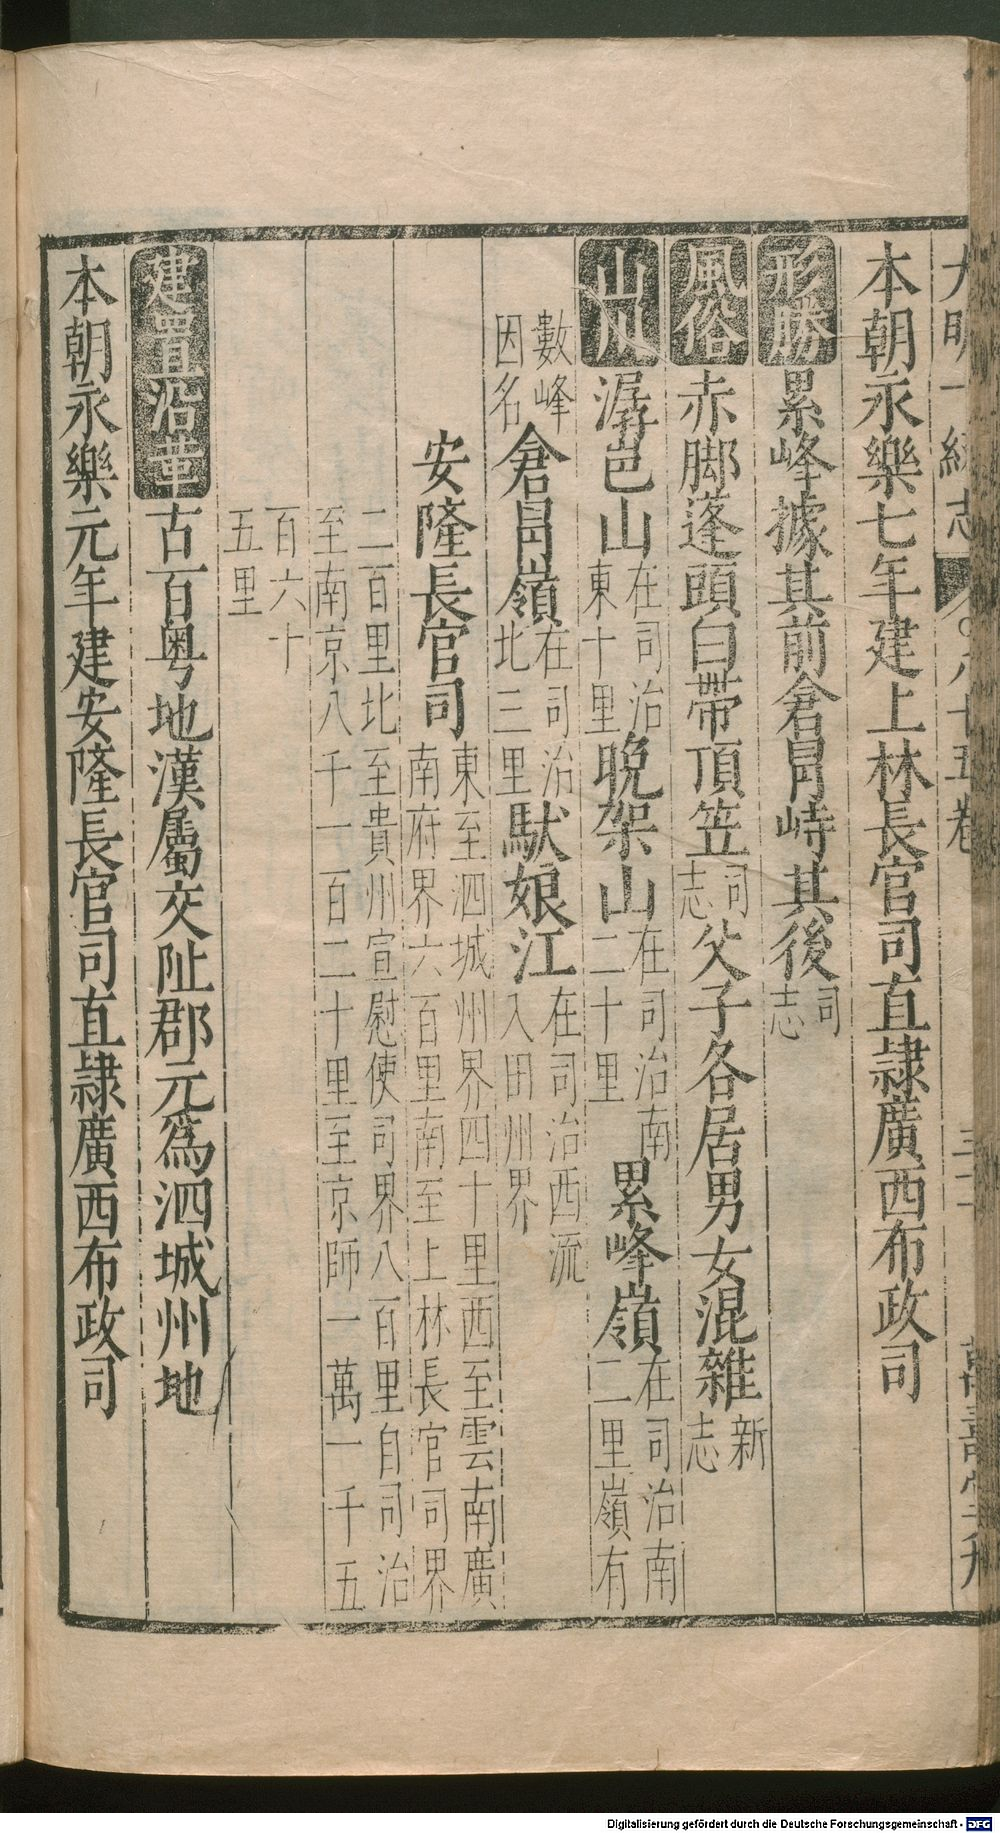 大明一統志 八十五卷 三十一 萬壽堂刋
本朝永樂七年建上林長官司直隷廣西布政司
形勝 累峰據其前倉冐峙其後 司志
風俗 赤脚蓬頭白帶頂笠 司志 父子各居男女混雜 新志
山川 潺岜山 在司治東十里 晩架山 在司治南二十里 累峰嶺 在司治南二里嶺有
數峰因名 倉冐嶺 在司治北三里 馱娘江 在司治西流入田州界
安隆長官司 東至泗城州界四十里西至雲南廣南府界六百里南至上林長官司界
二百里北至貴州宣慰使司界八百里自司治至南京八千一百二十里至京師一萬一千五
百六十五里
建置沿革 古百粤地漢屬交阯郡元爲泗城州地
本朝永樂元年建安隆長官司直隷廣西布政司
Digitalisierung gefördert durch die Deutsche Forschungsgemeinschaft - DFG